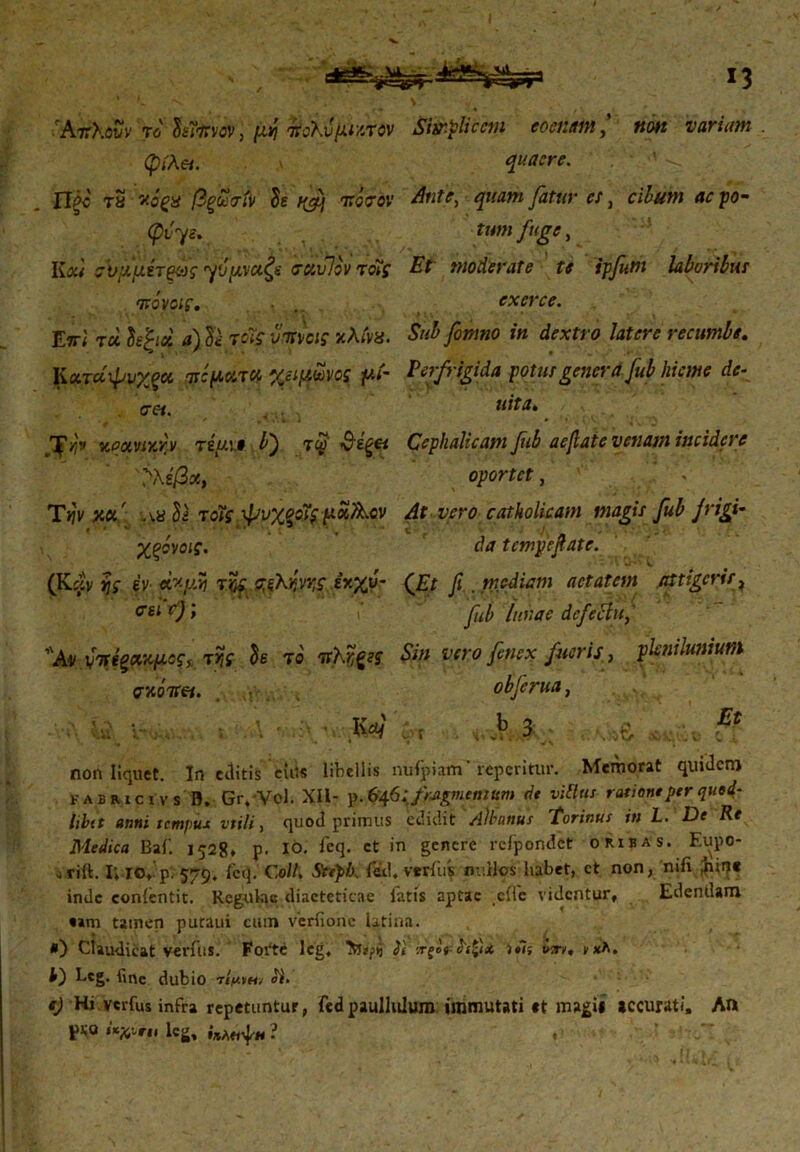 13
Ἁπλοῦν τὸ δεῖπνον, μὴ πολύμικτον
φίλει.
Πρὸ τȣ κόρȣ βρῶσίν δε καὶ πότον
φύγε.
Καὶ συμμέτρως γύμναζε σαυτὸν τοῖς
πόνοις.
Ἐπὶ τὰ δεξιὰ a) δὲ τοῖς ὕπνοις κλίνȣ.
Κατάψυχρα πόματα χειμῶνος μί-
σει.
Τὴν κρανικὴν τέμνε b) τῷ θέρει
φλέβα,
Τὴν δὲ τοῖς ψυχροῖς μᾶλλον
χρόνοις.
(Κἂν ᾖς ἐν ἀκμῇ τῆς σελήνης ἐκχύ-
σει c);
Ἂν ὑπέρακμος, τῆς δε τὸ πλῆρες
σκόπει.
Καὶ
Simplicem coenam, non variam
quaere.
Ante, quam satur es, cibum ac po-
tum fuge,
Et moderate te ipsum laboribus
exerce.
Sub somno in dextro latere recumbe.
Perfrigida potus genera sub hieme de-
uita.
Cephalicam sub aestate venam incidere
oportet,
At vero catholicam magis sub frigi-
da tempestate.
(Et si mediam aetatem attigeris,
sub lunae defectu,
Sin vero senex fueris, plenilunium
obserua,
b 3 Et
non liquet. In editis eius libellis nuspiam reperitur. Memorat quidem
FABRICIVS B. Gr. Vol. XII. p. 646: fragmentum de victus ratione per quod-
libet anni tempus vtili, quod primus edidit Albanus Torinus in L. De Re
Medica Bas. 1528, p. 10. seq. et in genere respondet ORIBAS. Eupo-
rist. I, 10, p. 579. seq. Coll. Steph. sed versus nullos habet, et non, nisi hinc
inde consentit. Regulae diaeteticae satis aptae esse videntur, Edendam
eam tamen putaui cum versione latina.
a) Claudicat versus. Forte leg. πρὸς δεξιὰ τοῖς ὕπν. κλ.
b) Leg. sine dubio τέμνειν δεῖ.
c) Hi versus infra repetuntur, sed paullulum immutati et magis accurati. An
pro ἐκχύσει leg. ἐκλείψει?